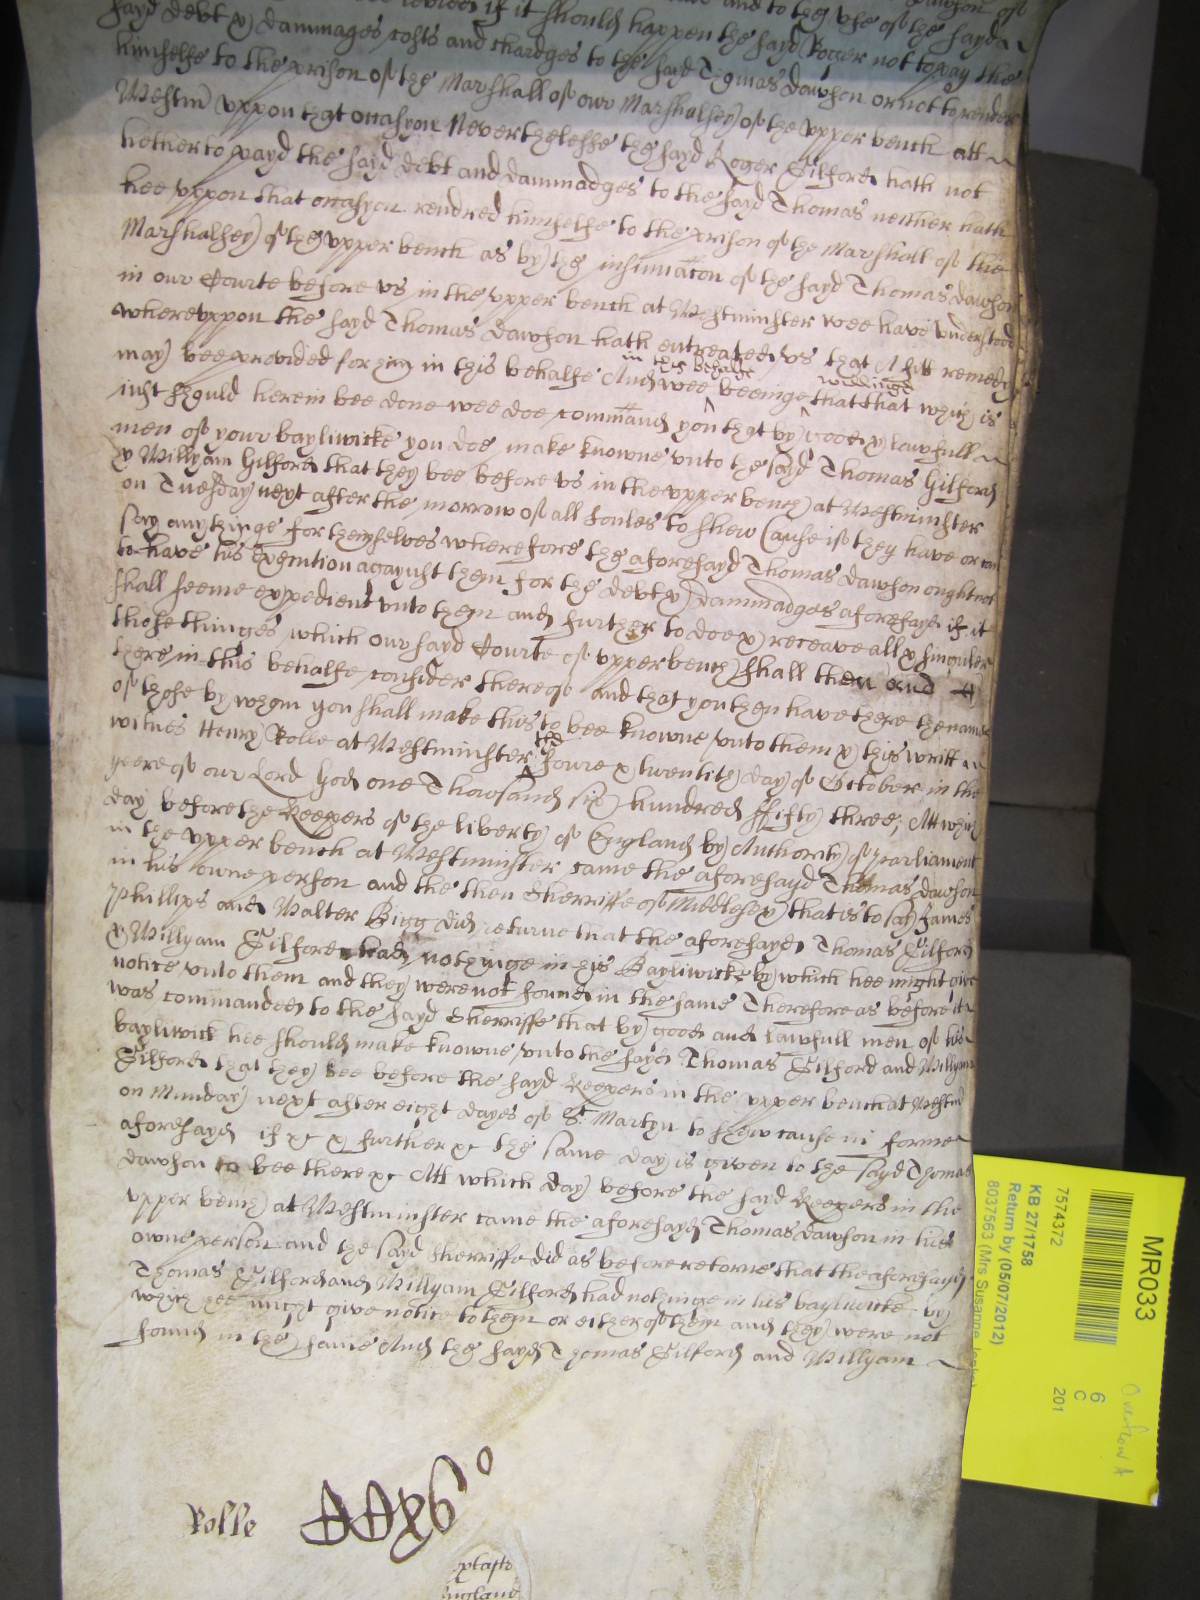 levied if it should happen the sayd Roger not to pay the
sayd debt & dammages costs and chardges to the sayd Thomas dawson or not to render
himselfe to the prison of the Marshall of our Marshalsey of the upper bench att
Westm uppon that occasyon Neverthelesse the sayd Roger Gilford hath not
hetherto payd the sayd debt and dammadges to the sayd Thomas neither hath
hee uppon that occasyon rendred himselfe to the prison of the Marshall of the
Marshalsey of the upper bench as by the insinuacon of the sayd Thomas dawson
in our Courte before us in the upper bench at Westminster wee have understood
whereuppon the sayd Thomas dawson hath entreated us that A fitt remedy
may bee provided for him in this behalfe And wee in this behalfe beeinge willinge that that which is
iust should herein bee done wee doe command you that by good & lawfull
men of your bayliwicke you doe make knowne unto the sayd Thomas Gilford
& Willyam Gilford that they bee before us in the upper bench at Westminster
on Tuesday next after the morrow of all soules to shew Cause if they have or can
say any thinge for themselves wherefore the aforesayd Thomas dawson ought not
to have his execution agaynst them for the debt & dammadges aforesayd if it
shall seeme expedient unto them and further to doe & receave all & singuler
those thinges which our sayd Courte of upper bench shall then and
there in this behalfe consider thereof and that you then have there the names
of those by whom you shall make this to bee knowne unto them & this writt
witnes Henry Rolle at Westminster the foure & twentith day of October in the
yeere of our Lord God one Thowsand six hundred fifty three; Att which
day before the Keepers of the liberty of England by Authority of parliament
in the upper bench at Westminster came the aforesayd Thomas dawson
in his owne person and the then Sherriffe of Middlesex that is to say James
Phillips and Walter Bigg did returne that the aforesayd Thomas Gilford
& Willyam Gilford had nothinge in his Bayliwicke by which hee might give
notice unto them and they were not found in the same Therefore as before it
was commanded to the sayd Sherriffe that by good and lawfull men of his
bayliwick hee should make knowne unto the sayd Thomas Gilford and Willyam
Gilford that they bee before the sayd Keepers in the upper bench at Westm
on Munday next after eight dayes of St Martyn to shew cause in forme
aforesayd if &c & further &c the same day is given to the sayd Thomas
dawson to bee there &c Att which day before the sayd Keepers in the
upper bench at Westminster came the aforesayd Thomas dawson in his
owne person and the sayd Sherriffe did as before returne that the aforesayd
Thomas Gilford and Willyam Gilford had nothinge in his bayliwicke by
which hee might give notice to them or either of them and they were not
found in the same And the sayd Thomas Gilford and Willyam
Rolle
MR033
7574372
6
C
201
KB 27/1758
Return by (05/07/2012)
8037563 (Mrs Susanne